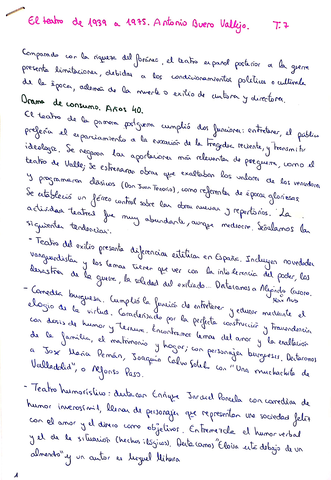 El teatro de 1939 a 1975. Antonio Buero Vallejo. T.7
Comparado con la riqueza del foráneo, el teatro español posterior a la guerra
presenta limitaciones, debidas a los condicionamientos políticos o culturales
de la época, además de la muerte o exilio de autores y directores.
Drama de consumo. Años 40.
El teatro de la primera posguerra cumplió dos funciones: entretener, el público
prefería el esparcimiento a la evocación de la tragedia reciente, y transmitir
ideología. Se negaron las aportaciones más relevantes de preguerra, como el
teatro de Valle; se estrenaron obras que exaltaban los valores de los vencedores
y programaron clásicos (Don Juan Tenorio), como referentes de épocas gloriosas.
Se estableció un férreo control sobre las obras nuevas y repertorios. La
actividad teatral fue muy abundante, aunque mediocre. Señalamos las
siguientes tendencias:
- Teatro del exilio presenta diferencias estéticas en España. Incluyen novedades
vanguardistas y los temas tienen que ver con la intolerancia del poder, los
desastres de la guerra, la soledad del exiliado... Destacamos a Alejandro Casona.
- Comedia burguesa. Cumplió la función de entretener y educar mediante el
elogio de la virtud. Caracterizada por la perfecta construcción y
con dosis de humor y ternura. Encontramos temas del amor y la exaltación
de la familia, el matrimonio y hogar; con personajes burgueses. Destacamos
a José María Pemán, Joaquín Calvo Sotelo con "Una muchachita de
Valladolid", o Alfonso Paso.
- Teatro humorístico: destacan Enrique Jardiel Poncela con comedias de
humor inverosímil, llenas de personajes que representan una sociedad feliz
con el amor y el dinero como objetivos. Entremezcla el humor verbal
y el de la situación (hechos ilógicos). Destacamos "Eloísa está debajo de un
almendro" y un autor es Miguel Mihura